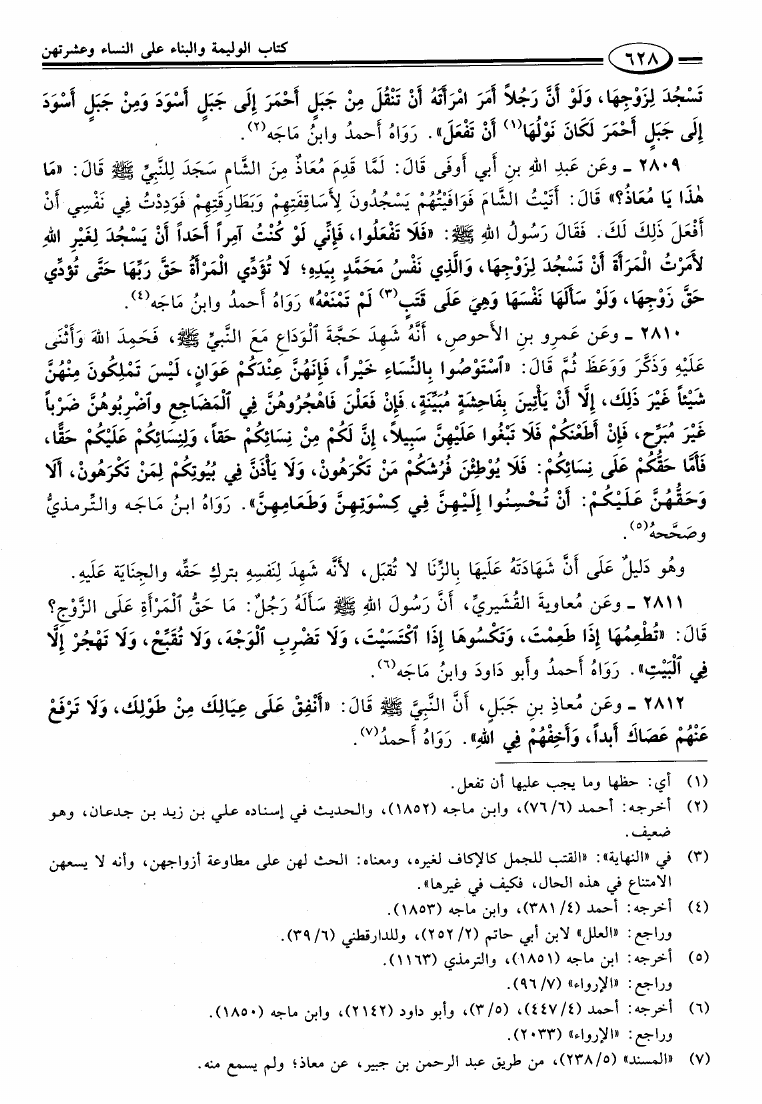 ٦٢٨
كتاب الوليمة والبناء على النساء وعشرتهن
تَسْجُدَ لِزَوْجِهَا، وَلَوْ أَنَّ رَجُلاً أَمَرَ امْرَأَتَهُ أَنْ تَنْقُلَ مِنْ جَبَلٍ أَحْمَرَ إِلَى جَبَلٍ أَسْوَدَ وَمِنْ جَبَلٍ أَسْوَدَ
إِلَى جَبَلٍ أَحْمَرَ لَكَانَ نَوْلُهَا(١) أَنْ تَفْعَلَ». رَوَاهُ أَحمدُ وابنُ مَاجَه(٢).
٢٨٠٩ ـ وعَن عَبدِ اللهِ بنِ أَبي أَوفَى قَالَ: لَمَّا قَدِمَ مُعَاذٌ مِنَ الشَّامِ سَجَدَ لِلنَّبِيِّ ﷺ قَالَ: «مَا
هٰذَا يَا مُعَاذُ؟» قَالَ: أَتَيْتُ الشَّامَ فَوَافَيْتُهُمْ يَسْجُدُونَ لِأَسَاقِفَتِهِمْ وَبَطَارِقَتِهِمْ فَوَدِدْتُ فِي نَفْسِي أَنْ
أَفْعَلَ ذَلِكَ لَكَ. فَقَالَ رَسُولُ اللهِ ﷺ: «فَلَا تَفْعَلُوا، فَإِنِّي لَوْ كُنْتُ آمِراً أَحَداً أَنْ يَسْجُدَ لِغَيْرِ اللهِ
لأَمَرْتُ الْمَرْأَةَ أَنْ تَسْجُدَ لِزَوْجِهَا، وَالَّذِي نَفْسُ مُحَمَّدٍ بِيَدِهِ؛ لَا تُؤَدِّي الْمَرْأَةُ حَقَّ رَبِّهَا حَتَّى تُؤَدِّي
حَقَّ زَوْجِهَا، وَلَوْ سَأَلَهَا نَفْسَهَا وَهِيَ عَلَى قَتَبٍ(٣) لَمْ تَمْنَعْهُ» رَوَاهُ أَحمدُ وابنُ مَاجَه(٤).
٢٨١٠ ـ وعَن عَمرِو بنِ الأَحوصِ، أَنَّهُ شَهِدَ حَجَّةَ الْوَدَاعِ مَعَ النَّبِيِّ ﷺ، فَحَمِدَ اللهَ وَأَثْنَى
عَلَيْهِ وَذَكَّرَ وَوَعَظَ ثُمَّ قَالَ: «اسْتَوْصُوا بِالنِّسَاءِ خَيْراً، فَإِنَّهُنَّ عِنْدَكُمْ عَوَانٍ، لَيْسَ تَمْلِكُونَ مِنْهُنَّ
شَيْئاً غَيْرَ ذَلِكَ، إِلَّا أَنْ يَأْتِينَ بِفَاحِشَةٍ مُبَيِّنَةٍ، فَإِنْ فَعَلْنَ فَاهْجُرُوهُنَّ فِي الْمَضَاجِعِ وَاضْرِبُوهُنَّ ضَرْباً
غَيْرَ مُبَرِّحٍ، فَإِنْ أَطَعْنَكُمْ فَلَا تَبْغُوا عَلَيْهِنَّ سَبِيلاً، إِنَّ لَكُمْ مِنْ نِسَائِكُمْ حَقاً، وَلِنِسَائِكُمْ عَلَيْكُمْ حَقًّا،
فَأَمَّا حَقُّكُمْ عَلَى نِسَائِكُمْ: فَلَا يُوطِئْنَ فُرُشَكُمْ مَنْ تَكْرَهُونَ، وَلَا يَأْذَنَّ فِي بُيُوتِكُمْ لِمَنْ تَكْرَهُونَ، أَلَا
وَحَقُّهُنَّ عَلَيْكُمْ: أَنْ تُحْسِنُوا إِلَيْهِنَّ فِي كِسْوَتِهِنَّ وَطَعَامِهِنَّ». رَوَاهُ ابنُ مَاجَه والتِّرمذيُّ
وصَحَّحهُ(٥).
وهُو دَلِيلٌ عَلَى أَنَّ شَهَادَتَهُ عَلَيهَا بِالزِّنَا لَا تُقبَل، لأَنَّه شَهِدَ لِنَفسِهِ بِتركِ حَقِّه والجِنَايَة عَلَيهِ.
٢٨١١ ـ وعَن مُعاويةَ القُشَيريِّ، أَنَّ رَسُولَ اللهِ ﷺ سَأَلَهُ رَجُلٌ: مَا حَقُّ الْمَرْأَةِ عَلَى الزَّوْجِ؟
قَالَ: «تُطْعِمُهَا إِذَا طَعِمْتَ، وَتَكْسُوهَا إِذَا اكْتَسَيْتَ، وَلَا تَضْرِبِ الْوَجْهَ، وَلَا تُقَبِّحْ، وَلَا تَهْجُرْ إِلَّا
فِي الْبَيْتِ». رَوَاهُ أَحمدُ وأَبو دَاودَ وابنُ مَاجَه(٦).
٢٨١٢ ـ وعَن مُعاذِ بنِ جَبَلٍ، أَنَّ النَّبِيَّ ﷺ قَالَ: «أَنْفِقْ عَلَى عِيَالِكَ مِنْ طَوْلِكَ، وَلَا تَرْفَعْ
عَنْهُمْ عَصَاكَ أَبَداً، وَأَخِفْهُمْ فِي اللهِ». رَوَاهُ أَحمدُ(٧).
(١) أي: حظها وما يجب عليها أن تفعل.
(٢) أخرجه: أحمد (٧٦/٦)، وابن ماجه (١٨٥٢)، والحديث في إسناده علي بن زيد بن جدعان، وهو
ضعيف.
(٣) في «النهاية»: «القتب للجمل كالإكاف لغيره، ومعناه: الحث لهن على مطاوعة أزواجهن، وأنه لا يسعهن
الامتناع في هذه الحال، فكيف في غيرها».
(٤) أخرجه: أحمد (٣٨١/٤)، وابن ماجه (١٨٥٣).
وراجع: «العلل» لابن أبي حاتم (٢٥٢/٢)، وللدارقطني (٣٩/٦).
(٥) أخرجه: ابن ماجه (١٨٥١)، والترمذي (١١٦٣).
وراجع: «الإرواء» (٩٦/٧).
(٦) أخرجه: أحمد (٤٤٧/٤)، (٣/٥)، وأبو داود (٢١٤٢)، وابن ماجه (١٨٥٠).
وراجع: «الإرواء» (٢٠٣٣).
(٧) «المسند» (٢٣٨/٥)، من طريق عبد الرحمن بن جبير، عن معاذ؛ ولم يسمع منه.